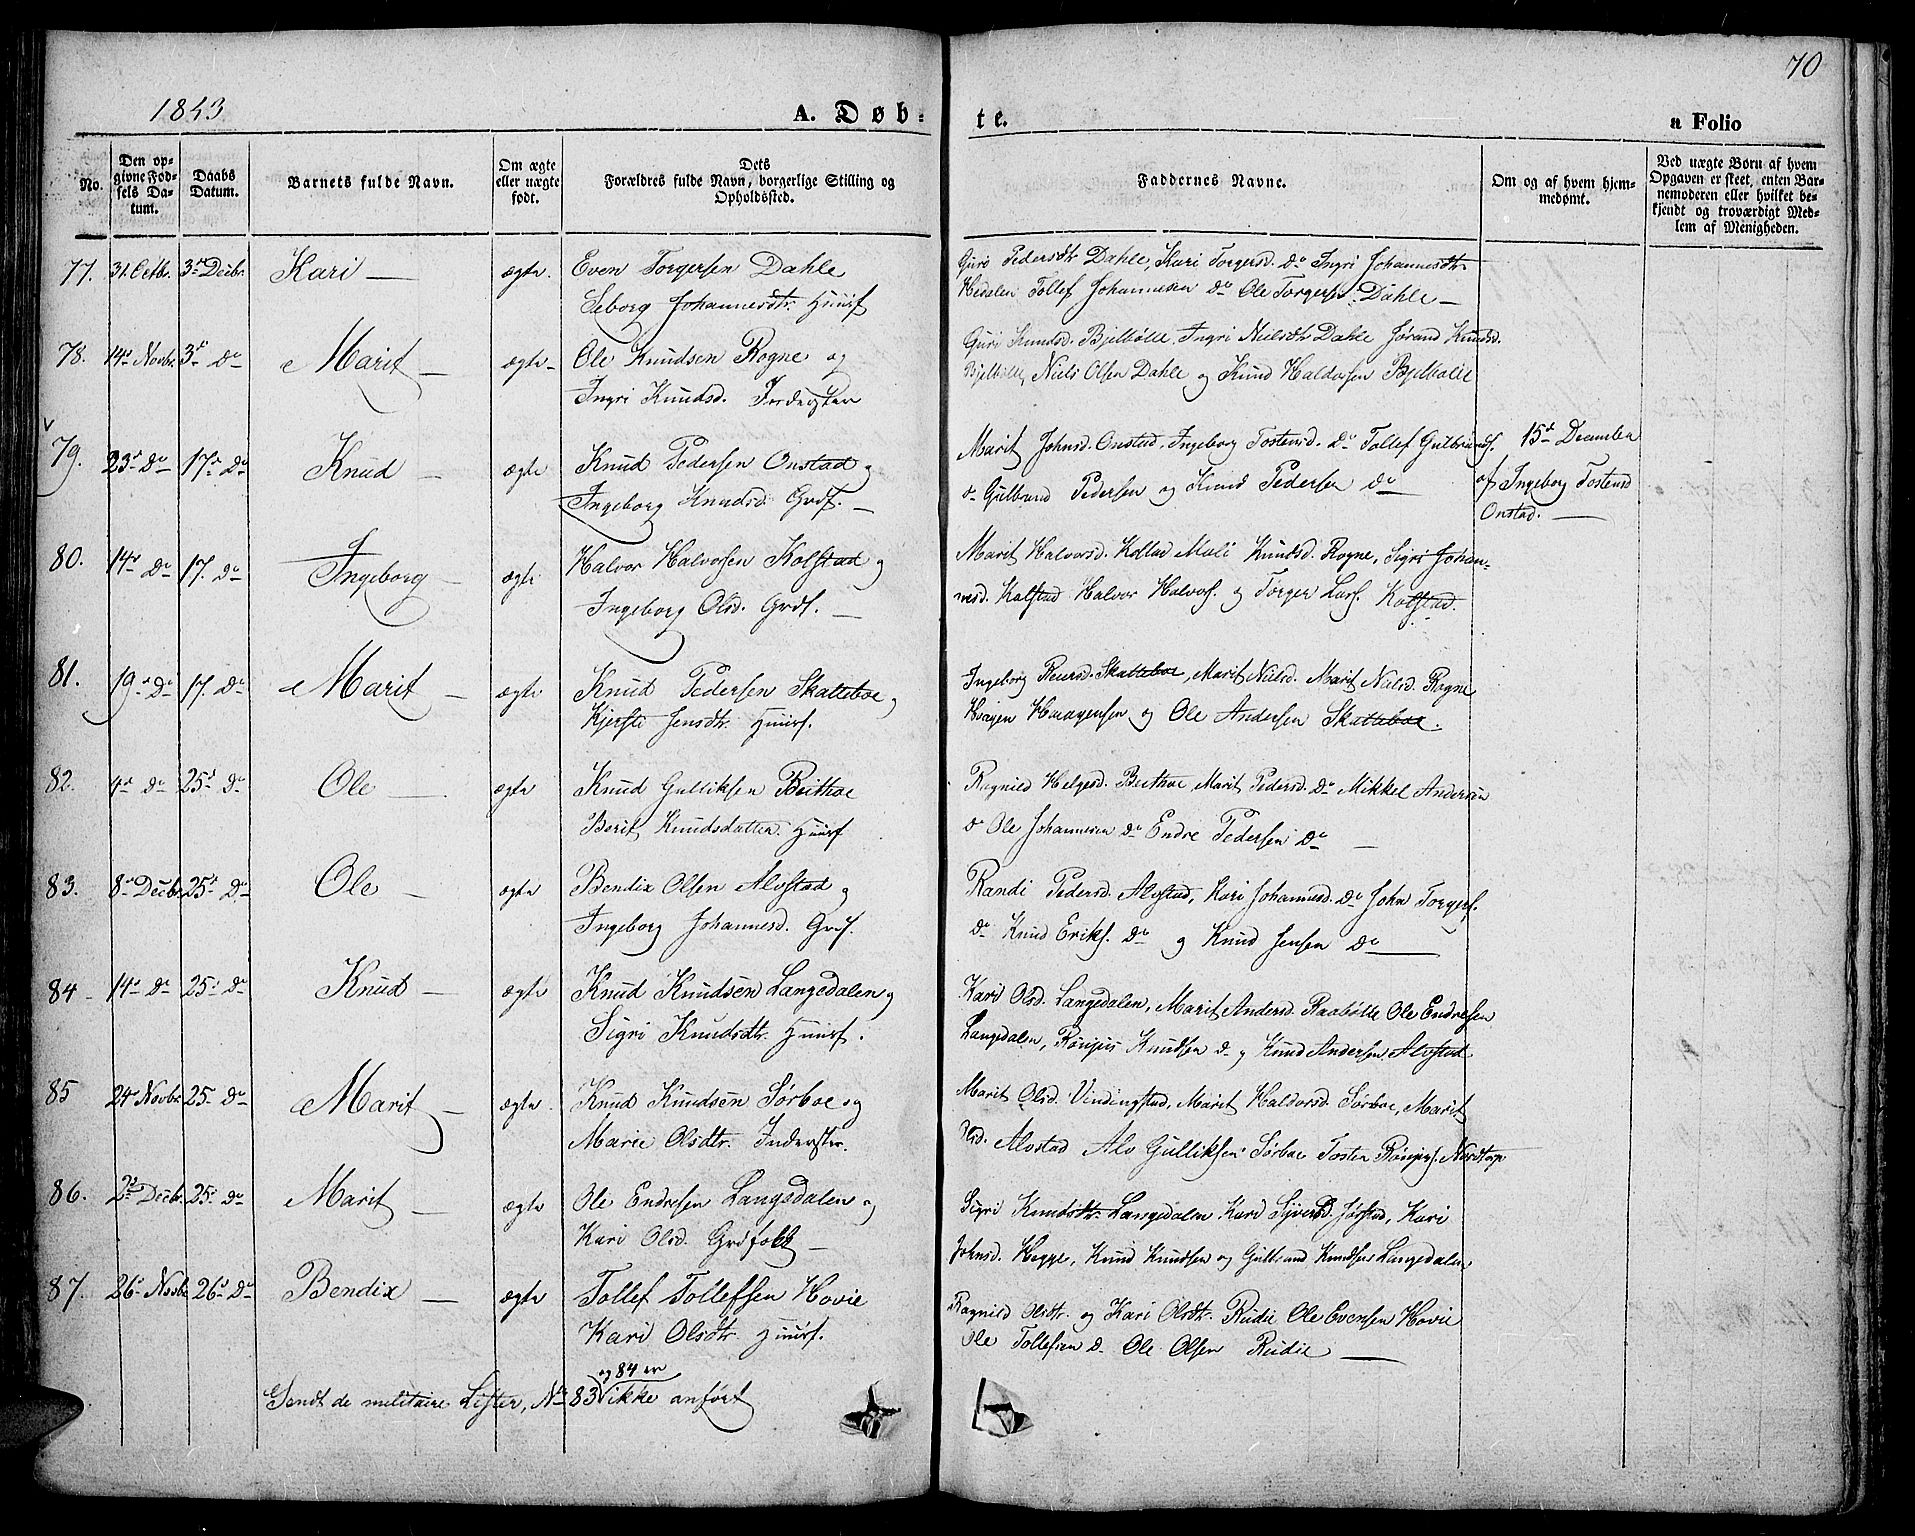 70
1843
A. Døb-
te.
a Folio
No.
Den op-
givne Fød-
sels Da-
tum.
Daabs
Datum.
Barnets fulde Navn.
Om ægte
eller uægte
født.
Dets
Forældres fulde Navn, borgerlige Stilling og
Opholdssted.
Faddernes Navne.
Om og af hvem hjem-
medømt.
Ved uægte Børn af hvem
Opgaven er skeet, enten Bar-
nemoderen eller hvilket be-
kjendt og troværdigt Med-
lem af Menigheden.
77. 31 Octbr. 3die Decbr. Kari — ægte. Even Torgersen Dahle
Seborg Johannesdtr. Huusf
Guri Pedersdtr Dahle, Kari Torgersd. Do Ingri Johannesdtr
Hedalen Tollef Johannesen Do Ole Torgersen Dahle —
78. 14d Novbr. 3d Do Marit — ægte- Ole Knudsen Rogne og
Ingri Knudsd. Inderster
Guri Knudsd. Bjelbølle, Ingri Nielsdtr Dahle Jørand Knudsd.
Bjelbølle, Niels Olsen Dahle og Knud Haldorsen Bjelbølle
79. 23d Do 17d Do Knud — ægte Knud Pedersen Onstad og
Ingeborg Knudsd. Grdf. —
Marit Johnsd. Onstad, Ingeborg Tostensd. Do Tollef Gulbrands.
Do Gulbrand Pedersen og Knud Pedersen Do —
15d December
af Ingeborg Tostensd
Onstad. —
80. 14d Do 17. Do Ingeborg — ægte Halvor Halvorsen Kolstad og
Ingeborg Olsd. Grdf. —
Marit Halvorsd. Kolstad Mali Knudsd. Rogne, Sigri Johan-
nesd. Kolstad Halvor Halvors. og Torger Lars. Kolstad.
81. 19d Do 17. Do Marit — ægte Knud Pedersen Skattebøe og
Kjersti Jensdtr. Huusf.
Ingeborg Reiersd. Skattebøe, Marit Nielsd. Marit Nielsd. Rogne
Haagen Haagensen og Ole Andersen Skattebøe.
82. 4d Do 25d Do Ole —. ægte Knud Gulliksen Beithoe
Berit Knudsdatter. Huusf
Ragnild Helgesd. Beithoe, Marit Pedersd. Do Mikkel Andersen
Do Ole Johannesen Do Endre Pedersen Do —
83. 8d Decbr. 25d Do Ole — ægte Bendix Olsen Alvstad og
Ingeborg Johannesd. Grdf.
Randi Pedersd. Alvstad, Kari Johannesd. Do John Torgers.
Do Knud Eriks. Do og Knud Jensen Do —
84 - 14d Do 25d Do Knud — ægte Knud Knudsen Langedalen og
Sigri Knudsdtr. Huusf.
Kari Olsd. Langedalen, Marit Andersd. Raabølle Ole Endresen
Langedalen, Knudsen Do og Knud Andersen Alvstad
85 24d Novbr 25d Do Marit — ægte. Knud Knudsen Sørboe og
Marie Olsdtr. Inderster.
Marit Olsd. Vindingstad, Marit Haldorsd. Sørboe, Marit
Olsd. Alvstad Alv Gulliksen Sørboe Tosten Nordtorp
86. 2d Decbr. 25d Do Marit — ægte Ole Endresen Langedalen og
Kari Olsd. Grdfolk —
Sigri Knudsdtr. Langedalen Kari Syversd. Jørstad, Kari
Johnsd. Hegge, Knud Knudsen og Gulbrand Knudsen Langedalen,
87. 26d Novbr 26d Do Bendix — ægte Tollef Tollefsen Hovie
Kari Olsdtr. Huusf.
Ragnild Olsdtr. og Kari Olsdtr. Rudie Ole Evensen Hovie
Ole Tollefsen Do. Ole Olsen Rudie —
og 84 er
Sendt de militaire Lister, No 83 ikke anført